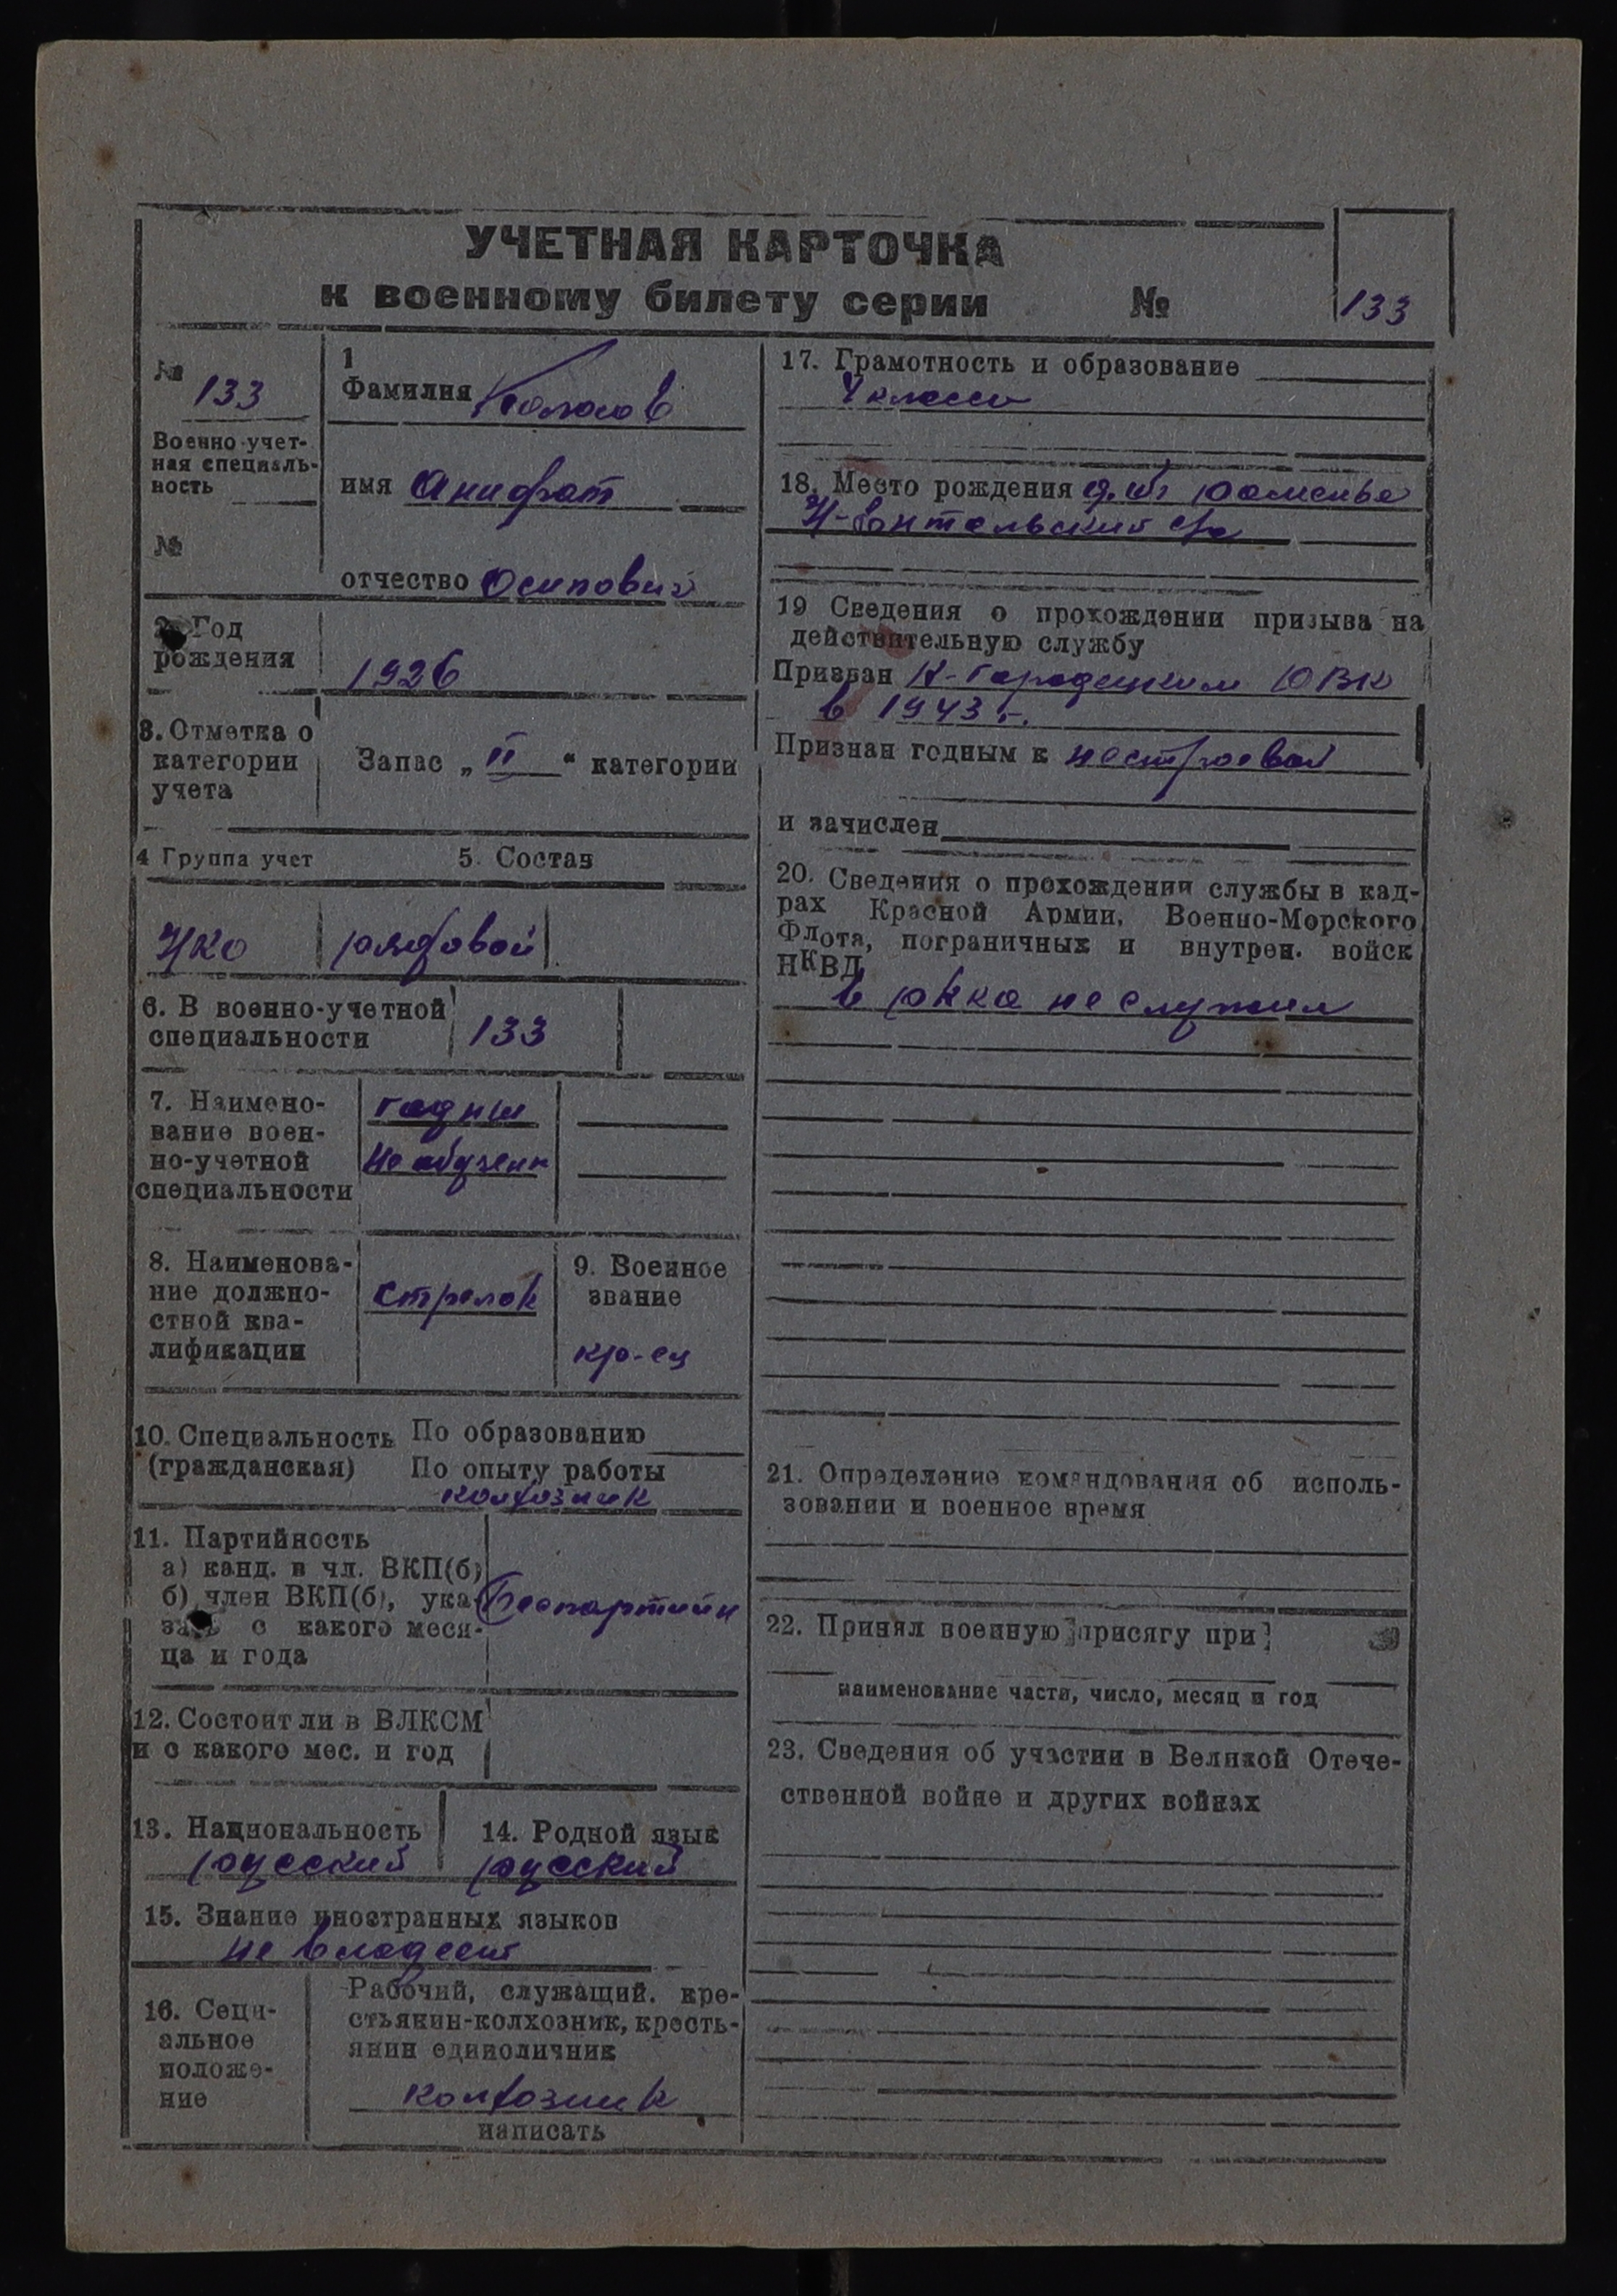 УЧЕТНАЯ КАРТОЧКА
к военному билету серии №
133
№ 133
Военно-учет-
ная специаль-
ность
№
1
Фамилия Колосов
имя Анифат
отчество Осипович
2. Год
рождения
1926
3. Отметка о
категории
учета
Запас „II“ категории
4 Группа учет
5. Состав
НКО
рядовой
6. В военно-учетной
специальности
133
7. Наимено-
вание воен-
но-учетной
специальности
годны
не обучен
8. Наименова-
ние должно-
стной ква-
лификации
стрелок
9. Военное
звание
кр-ец
10. Специальность
(гражданская)
По образованию
По опыту работы
колхозник
11. Партийность
а) канд. в чл. ВКП(б)
б) член ВКП(б), ука-
зать с какого меся-
ца и года
Беспартийн
12. Состоит ли в ВЛКСМ
и с какого мес. и год
13. Национальность
русский
14. Родной язык
русский
15. Знание иностранных языков
не владеет
16. Соци-
альное
положе-
ние
Рабочий, служащий, кре-
стьянин-колхозник, кресть-
янин единоличник
колхозник
написать
17. Грамотность и образование
4 класса
18. Место рождения Раменье
19 Сведения о прохождении призыва на
действительную службу
Призван К-Городецким РВК
в 1943 г.
Признан годным к нестроевой
и зачислен
20. Сведения о прохождении службы в кад-
рах Красной Армии, Военно-Морского
Флота, пограничных и внутрен. войск
НКВД
в РККА не служил
21. Определение командования об исполь-
зовании и военное время
22. Принял военную присягу при
наименование части, число, месяц и год
23. Сведения об участии в Великой Отече-
ственной войне и других войнах